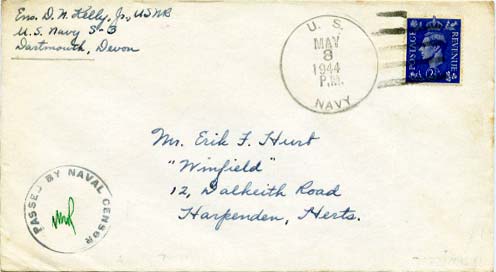 Ens. D. N. Kelly, Jr., USNR
U.S. Navy S-3
Dartmouth, Devon
U. S.
MAY
8
1944
P.M.
NAVY
POSTAGE
REVENUE
Mr. Erik F. Hurt
"Winfield"
12, Dalkeith Road
Harpenden, Herts.
PASSED BY NAVAL CENSOR